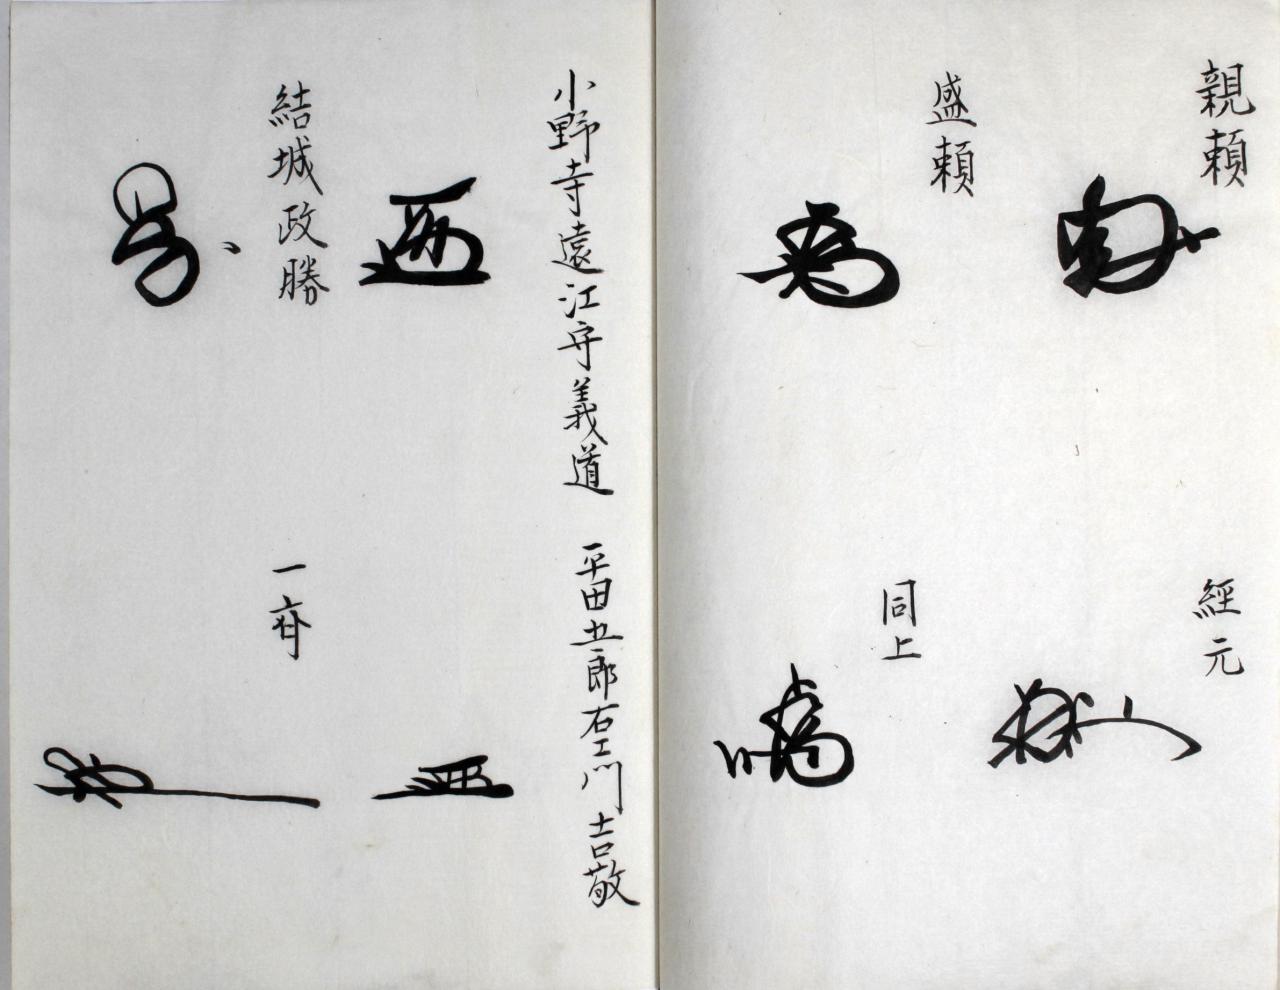 親頼
經元
盛頼
同上
小野寺遠江守義道
平田五郎右工門吉敬
結城政勝
一斎